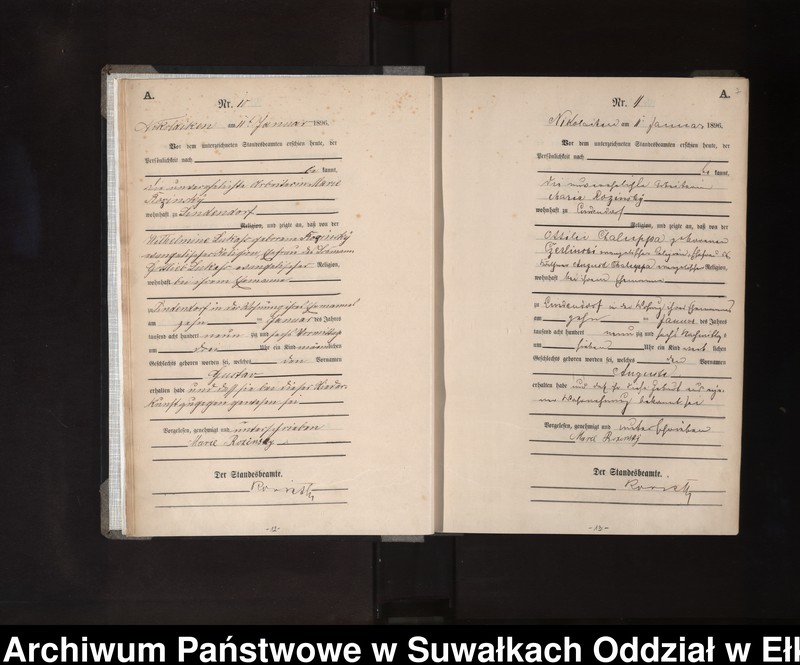 A.
Nr. 10
Nikolaiken am 11t Januar 1896.
Vor dem unterzeichneten Standesbeamten erschien heute, der
Persönlichkeit nach
be kannt,
die unverehelichte Arbeiterin Marie
Rozinsky
wohnhaft zu Lindendorf
Religion, und zeigte an, daß von der
Wilhelmine Lukas geborene Rozinsky
evangelischer Religion Ehefrau des
Gottlieb Lukas evangelischer Religion,
wohnhaft bei ihrem Ehemanne
zu Lindendorf in der Wohnung ihres Ehemannes
am zehn ten Januar des Jahres
tausend acht hundert neun zig und sechs Vormittags
um drei Uhr ein Kind männlichen
Geschlechts geboren worden sei, welches den Vornamen
Gustav
erhalten habe und daß sie bei dieser Nieder
kunft zugegen gewesen sei
Vorgelesen, genehmigt und unterschrieben
Marie Rozinsky
Der Standesbeamte.
-12-
A.
Nr. 11
Nikolaiken am 11 Januar 1896.
Vor dem unterzeichneten Standesbeamten erschien heute, der
Persönlichkeit nach
be kannt,
die unverehelichte Arbeiterin
Marie Rozinsky
wohnhaft zu Lindendorf
Religion, und zeigte an, daß von der
Ottilie Chaluppa geborenen
evangelischer Religion, Ehefrau des
August Chaluppa evangelischer Religion,
wohnhaft bei ihrem Ehemanne
zu Lindendorf in der Wohnung ihres Ehemannes
am zehn ten Januar des Jahres
tausend acht hundert neun zig und sechs Nachmittags
um sieben Uhr ein Kind weib lichen
Geschlechts geboren worden sei, welches den Vornamen
Auguste
erhalten habe und daß sie diese Geburt aus eige
ner Wahrnehmung bekannt sei
Vorgelesen, genehmigt und unterschrieben
Marie Rozinsky
Der Standesbeamte.
-13-
Archiwum Państwowe w Suwałkach Oddział w Ełk